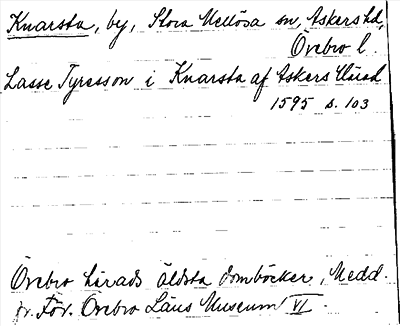 Knarsta, by, Stora Mellösa sn, Askers hd,
Örebro l.
Lasse Tyresson i Knarsta af Askers Härad
1595 s. 103
Örebro härads äldsta dombböcker, Medd.
fr. För. Örebro Läns Museum VI.